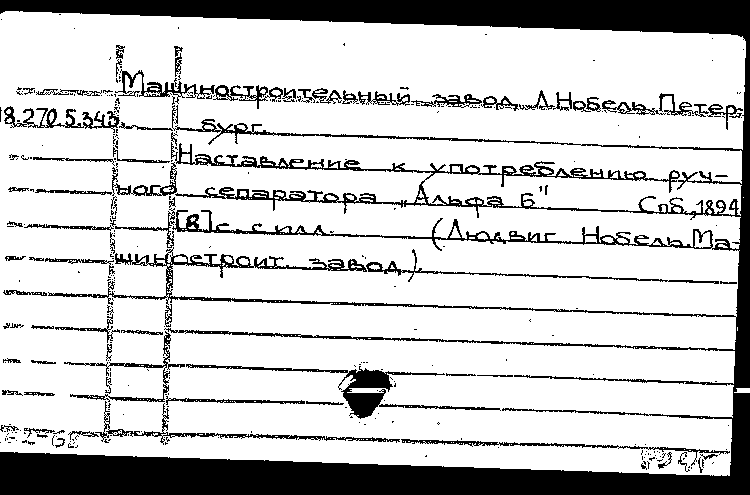 Машиностроительный завод Л.Нобель. Петер-
18.270.5.343. бург.
Наставление к употреблению руч-
ного сепаратора „Альфа Б". Спб., 1894.
[8]с. с илл. (Людвиг Нобель. Ма-
шиностроит. завод).